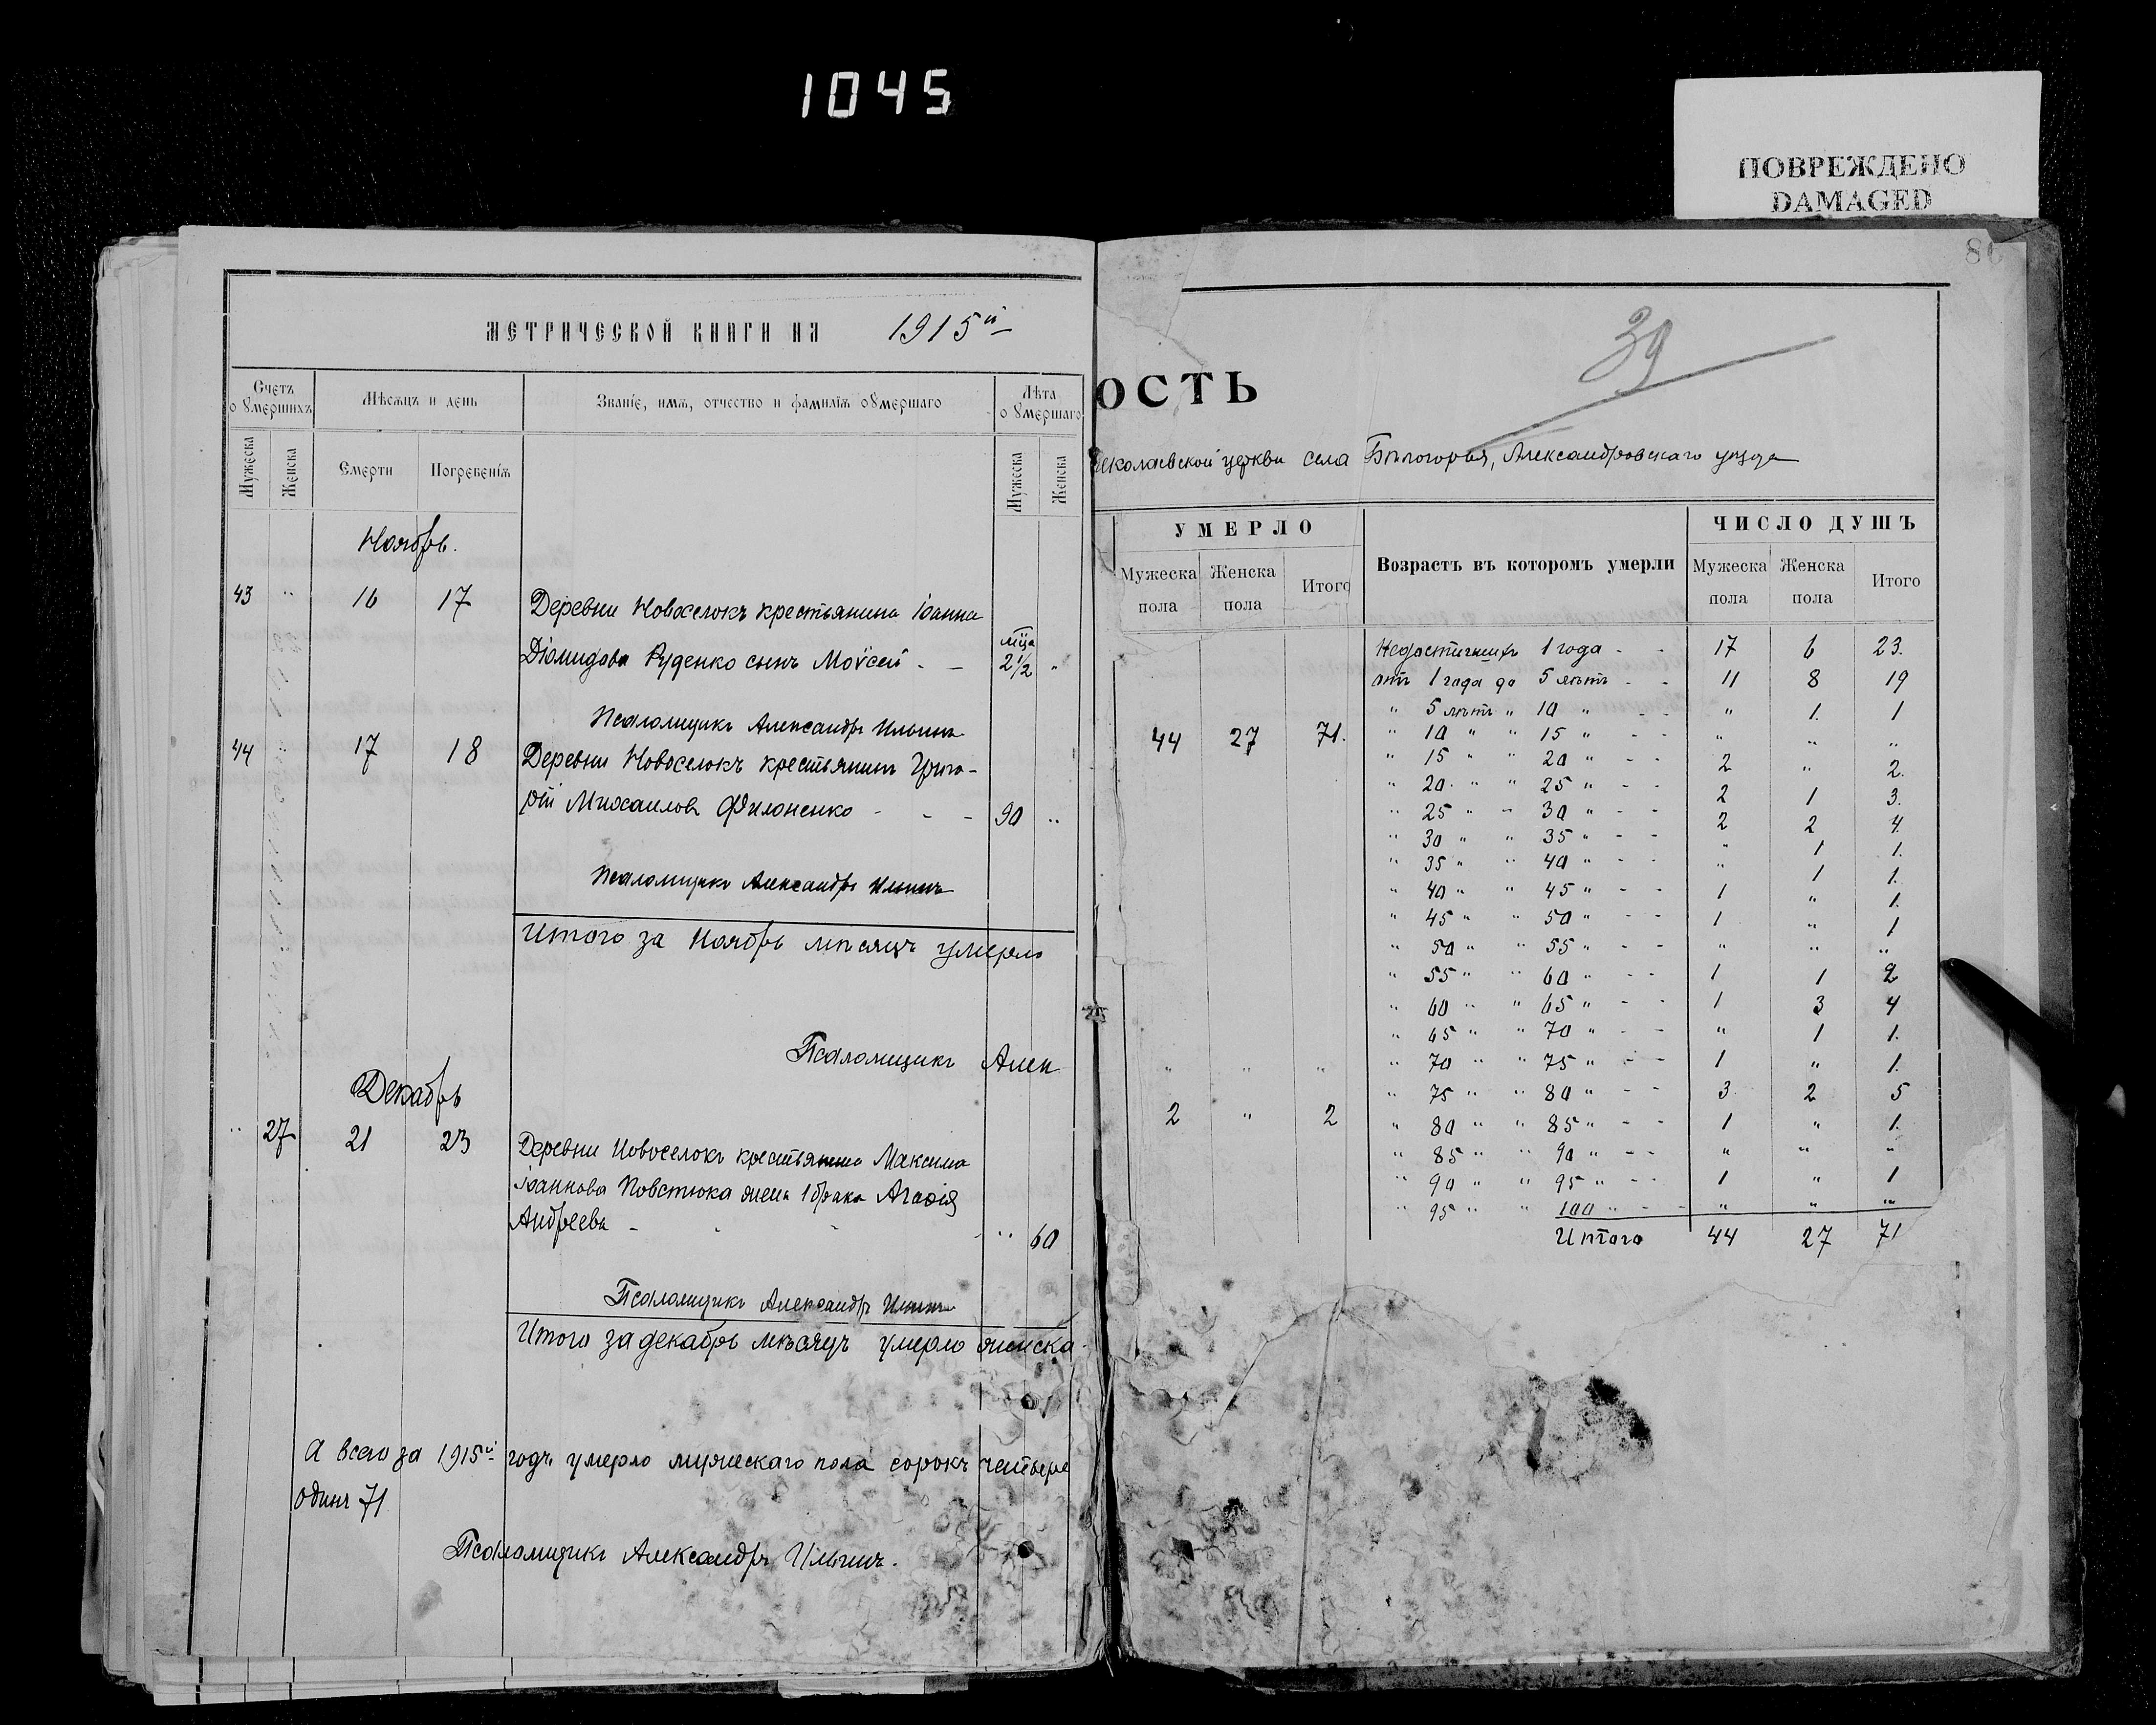 1045
ПОВРЕЖДЕНО
DAMAGED
МЕТРИЧЕСКОЙ КНИГИ НА 1915й
Счетъ оумершихъ
Мѣсяцъ и день
Званіе, имя, отчество и фамилія оумершаго
Лѣта оумершаго
Мужеска
Женска
Смерти
Погребенія
Мужеска
Женска
Ноябрь.
43 " 16 17 Деревни Новоселокъ крестьянина Іоанна
Діомидова Руденко сынъ Моѵсей - - мца 2½ "
Псаломщикъ Александръ Ильинъ
44 " 17 18 Деревни Новоселокъ крестьянинъ Григо-
рій Михаиловъ Филоненко - - - 90 "
Псаломщикъ Александръ Ильинъ
Итого за Ноябрь мѣсяцъ умерло
Псаломщикъ Алек
Декабрь
" 27 21 23 Деревни Новоселокъ крестьянина Максима
Іоаннова Повстюка жена 1 брака Агафія
Андреева - - - " 60
Псаломщикъ Александръ Ильинъ
Итого за декабрь мѣсяцъ умерло женска
А всего за 1915й годъ умерло мужескаго пола сорокъ четыре
одинъ 71
Псаломщикъ Александръ Ильинъ.
39
ОСТЬ
Николаевской церкви села Бѣлогорья, Александровскаго уѣзда
УМЕРЛО
Мужеска пола
Женска пола
Итого
Возрастъ въ которомъ умерли
ЧИСЛО ДУШЪ
Мужеска пола
Женска пола
Итого
44 27 71.
" " "
2 " 2
Недостигшихъ 1 года - - 17 6 23.
отъ 1 года до 5 лѣтъ - - 11 8 19
" 5 лѣтъ " 10 " - - " 1. 1
" 10 " " 15 " - - " " "
" 15 " " 20 " - - 2 " 2.
" 20 " " 25 " - - 2 1 3.
" 25 " " 30 " - - 2 2 4.
" 30 " " 35 " - - " 1 1.
" 35 " " 40 " - - " 1 1.
" 40 " " 45 " - - 1 " 1.
" 45 " " 50 " - - 1 " 1
" 50 " " 55 " - - " " "
" 55 " " 60 " - - 1 1 2
" 60 " " 65 " - - 1 3 4
" 65 " " 70 " - - " 1 1.
" 70 " " 75 " - - 1 " 1.
" 75 " " 80 " - - 3 2 5
" 80 " " 85 " - - 1 " 1.
" 85 " " 90 " - - " " "
" 90 " " 95 " - - 1 " 1
" 95 " " 100 " - - " " "
Итого 44 27 71